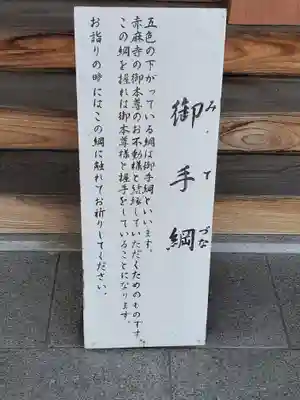 御手綱
み・て・づな
五色の下がっている綱は御手綱といいます。
赤麻寺の御本尊のお不動様と結縁していただくためのものです。
この綱を握れば御本尊様と握手をしていることになります。
お詣りの時にはこの綱に触れてお祈りしてください。